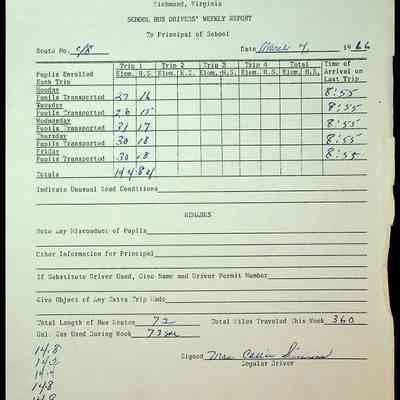 Richmond, Virginia
SCHOOL BUS DRIVERS' WEEKLY REPORT
To Principal of School
Route No. Date March 7, 1966
Trip 1 Trip 2 Trip 3 Trip 4 Total Time of
Pupils Enrolled Elem. H.S. Elem. H.S. Elem. H.S. Elem. H.S. Elem. H.S. Arrival on
Each Trip Last Trip
Monday
Pupils Transported 27 16 8:55
Tuesday
Pupils Transported 26 15 8:55
Wednesday
Pupils Transported 31 17 8:55
Thursday
Pupils Transported 30 18 8:55
Friday
Pupils Transported 30 18 8:55
Totals 144 84
Indicate Unusual Road Conditions
REMARKS
Note Any Misconduct of Pupils
Other Information for Principal
If Substitute Driver Used, Give Name and Driver Permit Number
Give Object of Any Extra Trip Made
Total Length of Bus Routes 72 Total Miles Traveled This Week 360
Gal. Gas Used During Week 73
Signed Mrs.
Regular Driver
14.8
14.2
14.4
14.8
14.9